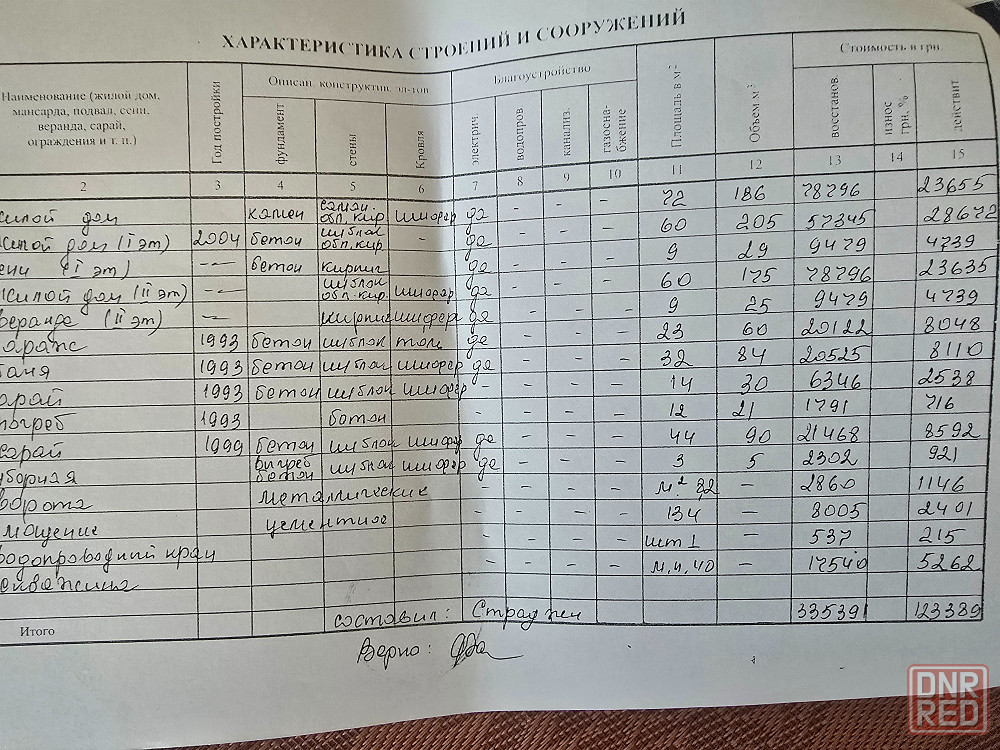 ХАРАКТЕРИСТИКА СТРОЕНИЙ И СООРУЖЕНИЙ
Наименование (жилой дом, мансарда, подвал, сени, веранда, сарай, ограждения и т. п.) Год постройки Описан. конструктив. эл-тов Благоустройство Площадь в м² Объем м³ Стоимость в грн.
фундамент стены Кровля электрич водопров канализ. газосна-бжение восстанов. износ грн. % действит
2 3 4 5 6 7 8 9 10 11 12 13 14 15
жилой дом камен саман. обл. кир. шифер да - - - 72 186 78796 23655
жилой дом (I эт) 2004 бетон ш/блок обл. кир. - да - - - 60 205 57345 28672
сени (I эт) -"- бетон кирпич да - - - 9 29 9479 4739
жилой дом (II эт) -"- ш/блок обл. кир. шифер да - - - 60 175 78796 23635
веранда (II эт) -"- кирпич шифер да - - - 9 25 9479 4739
гараж 1993 бетон ш/блок толь да - - - 23 60 20122 8048
баня 1993 бетон ш/блок шифер да - - - 32 84 20525 8110
сарай 1993 бетон ш/блок шифер - - - - 14 30 6346 2538
погреб 1993 бетон - - - - 12 21 1791 716
сарай 1999 бетон ш/блок шифер да - - - 44 90 21468 8592
уборная выгреб бетон ш/блок шифер да - - - 3 5 2302 921
ворота металлические - - - - м² 8,2 - 2860 1146
мощение цементное - - - - 134 - 8005 2401
водопроводный кран - - - - шт 1 - 537 215
скважина - - - - м.п. 40 - 17540 5262
Итого составил: 335391 123389
Верно:
DNR
RED